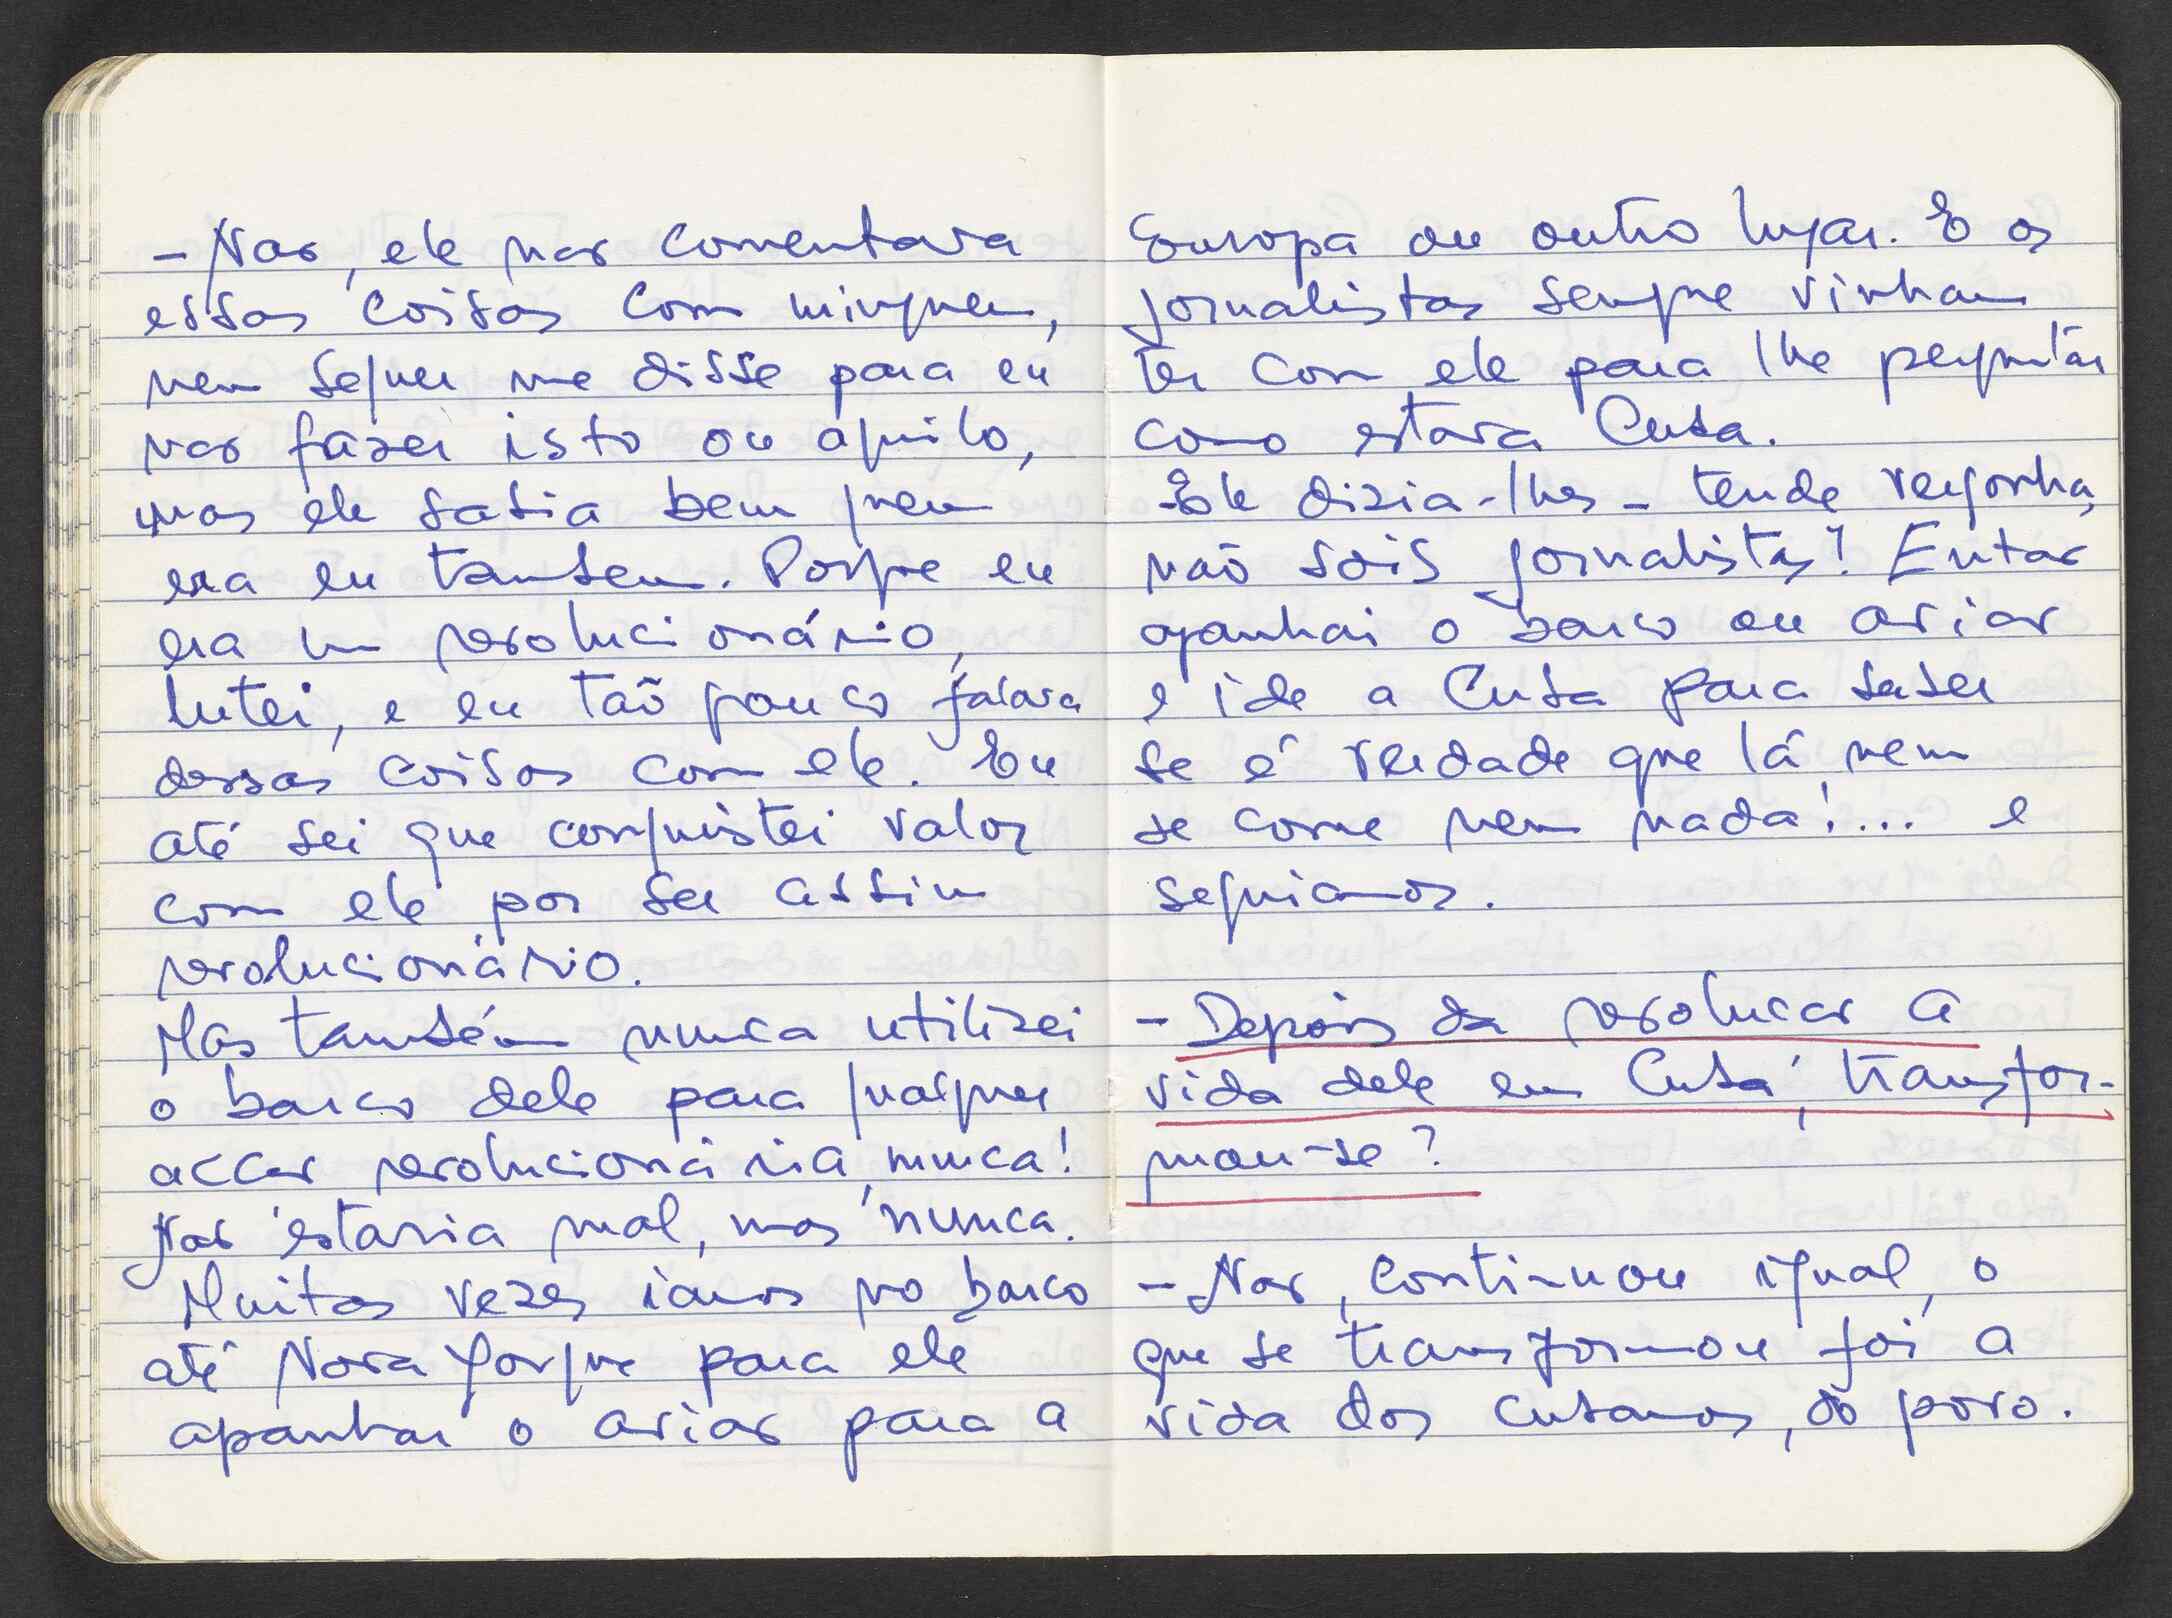 - Não, ele não comentava
essas coisas com ninguem,
nem sequer me disse para eu
não fazer isto ou aquilo,
mas ele sabia bem quem
era eu tambem. Porque eu
era um revolucionário,
lutei, e eu taõ pouco falava
dessas coisas com ele. Eu
até sei que conquistei valor
com ele por ser assim
revolucionário.
Mas também nunca utilizei
o barco dele para qualquer
accão revolucionária, nunca!
Não estaria mal, mas nunca.
Muitas vezes iamos no barco
até Nova Yorque para ele
apanhar o avião para a
Europa ou outro lugar. E os
jornalistas sempre vinham
ter com ele para lhe perguntar
como estava Cuba.
-Ele dizia-lhes - tende vergonha,
naõ sois jornalistas? Entao
apanhai o barco ou aviao
e ide a Cuba para saber
se é verdade que lá nem
se come nem nada!... e
seguiamos.
- Depois da revolucao a
vida dele em Cuba, transfor-
mou-se?
- Nao, continuou igual, o
que se transformou foi a
vida dos cubanos, do povo.